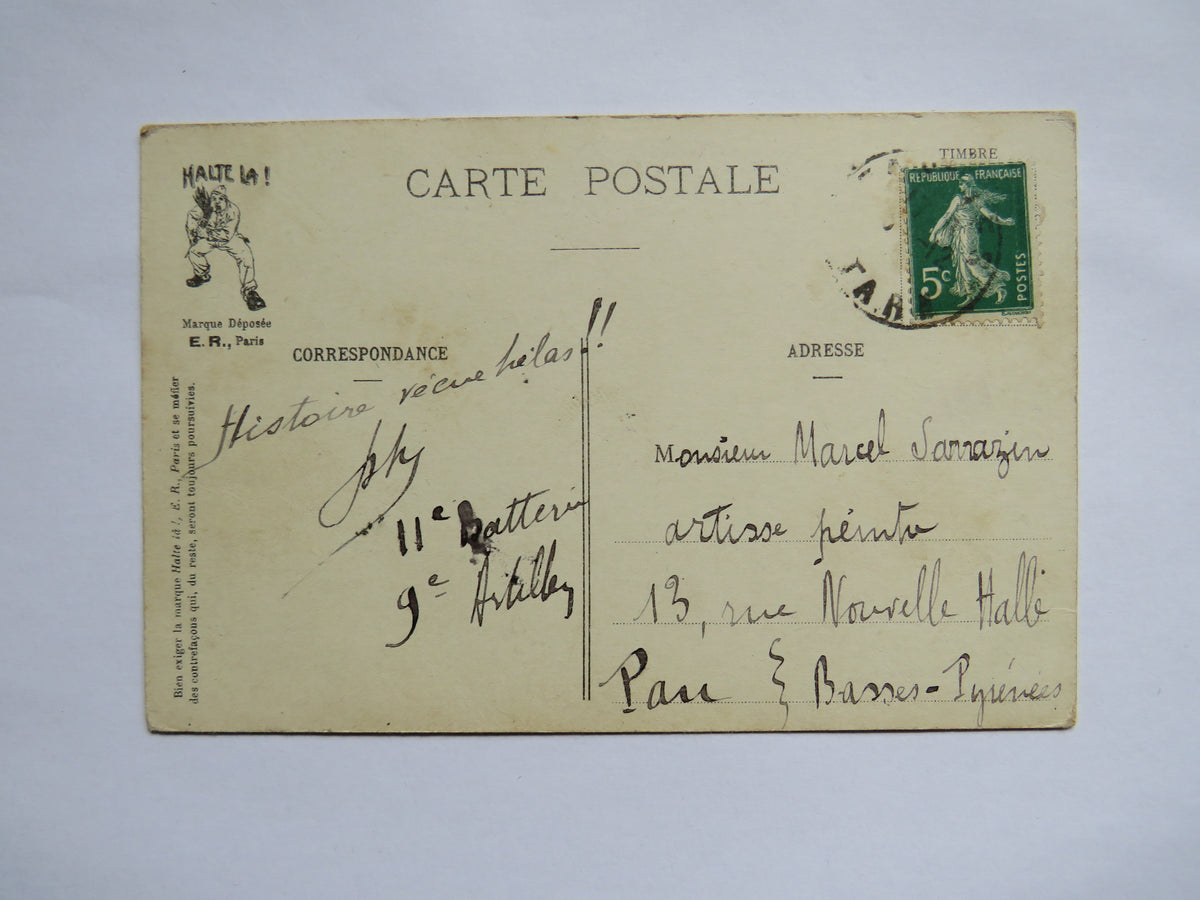 HALTE LA !
Marque Déposée
E. R., Paris
CARTE POSTALE
TIMBRE
REPUBLIQUE FRANÇAISE
5c
POSTES
TAR
CORRESPONDANCE
Histoire vécue hélas !!
11e batterie
9e
Bien exiger la marque Halte là !, E. R., Paris et se méfier
des contrefaçons qui, du reste, seront toujours poursuivies.
ADRESSE
Monsieur Marcel Sarrazin
artisse peintre
13, rue Nouvelle Halle
Pau Basses-Pyrénées